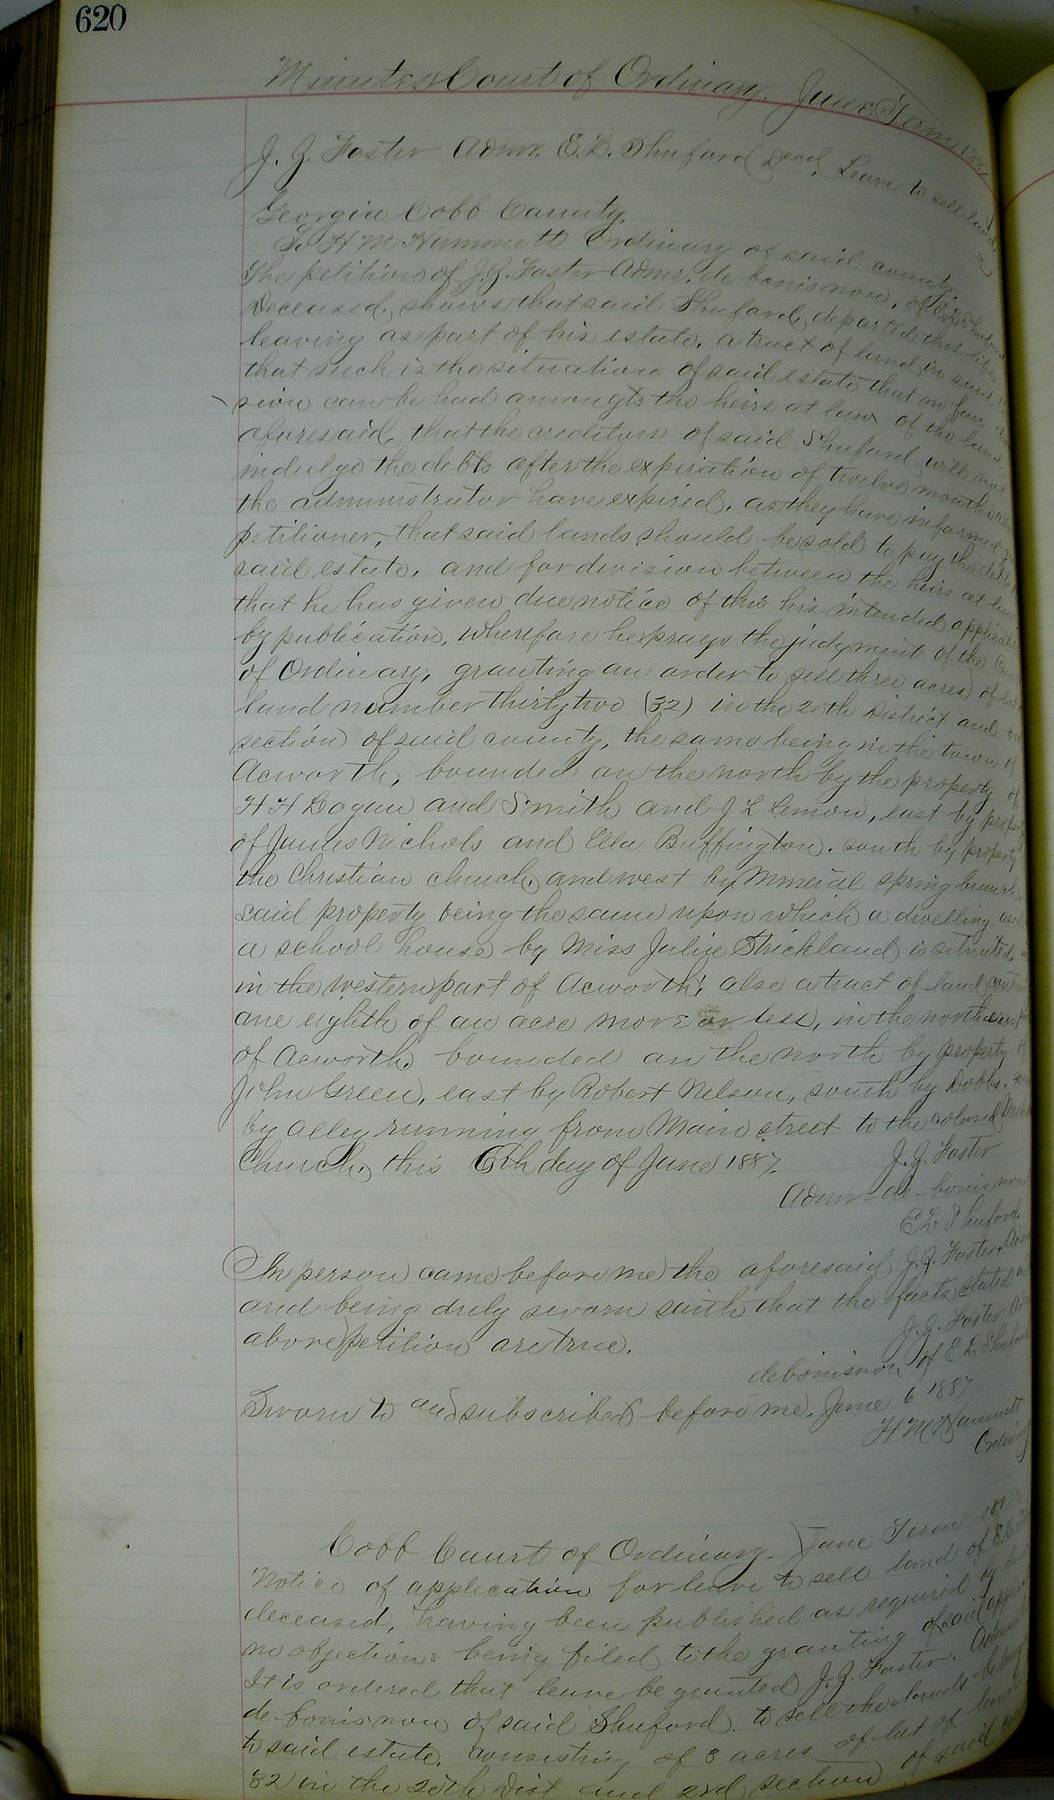 620
Minutes Court of Ordinary, June Term 188
J. J. Foster Admr. E. L. Shuford Decd, Leave to sell land
Georgia Cobb County.
To H M Hammett Ordinary of said county.
The petition of J. J. Foster Admr. de bonis non, of E. L. Shuford
Deceased, shows that said Shuford, departed this life
leaving as part of his estate, a tract of land in said
that such is the situation of said estate that no fair
sion can be had amongts the heirs at law of the land
aforesaid, that the creditors of said Shuford will not
indulge the debts after the expiration of twelve months
the administrator have expired, as they have informed
petitioner, that said lands should be sold to pay the debts
said estate, and for division between the heirs at law
that he has given due notice of this his intended application
by publication, wherefore he prays the judgment of the
of Ordinary, granting an order to sell three acres of lot
land number thirty two (32) in the 20th District and
section of said county, the same being in the town of
Acworth, bounded on the north by the property of
H H Logan and Smith and J L Lemon, east by property
of James Nichols and Ella Buffington, south by property
the Christian church, and west by Mineral spring branch
said property being the same upon which a dwelling
a school house by Miss Julize Strickland is situated,
in the western part of Acworth; also a tract of land
one eighth of an acre more or less, in the northern
of Acworth bounded on the north by property of
John Green, east by Robert Nelson, south by Dobbs,
by alley running from Main street to the colored
Church, this 6th day of June 1887.
J. J. Foster
Admr de bonis non
E L Shuford
In person came before me the aforesaid J. J. Foster,
and being duly sworn saith that the facts stated
above petition are true.
J. J. Foster
de bonis non of E L Shuford
Sworn to and subscribed before me, June 6 1887
H M Hammett
Ordinary
Cobb Court of Ordinary. June Term 188
Notice of application for leave to sell land of E. L.
deceased, having been published as required by
no objections being filed to the granting of said
It is ordered that leave be granted J. J. Foster,
de bonis non of said Shuford, to sell the lands belong
to said estate, consisting of 3 acres of lot of land
32 in the 20th Dist and 2nd section of said